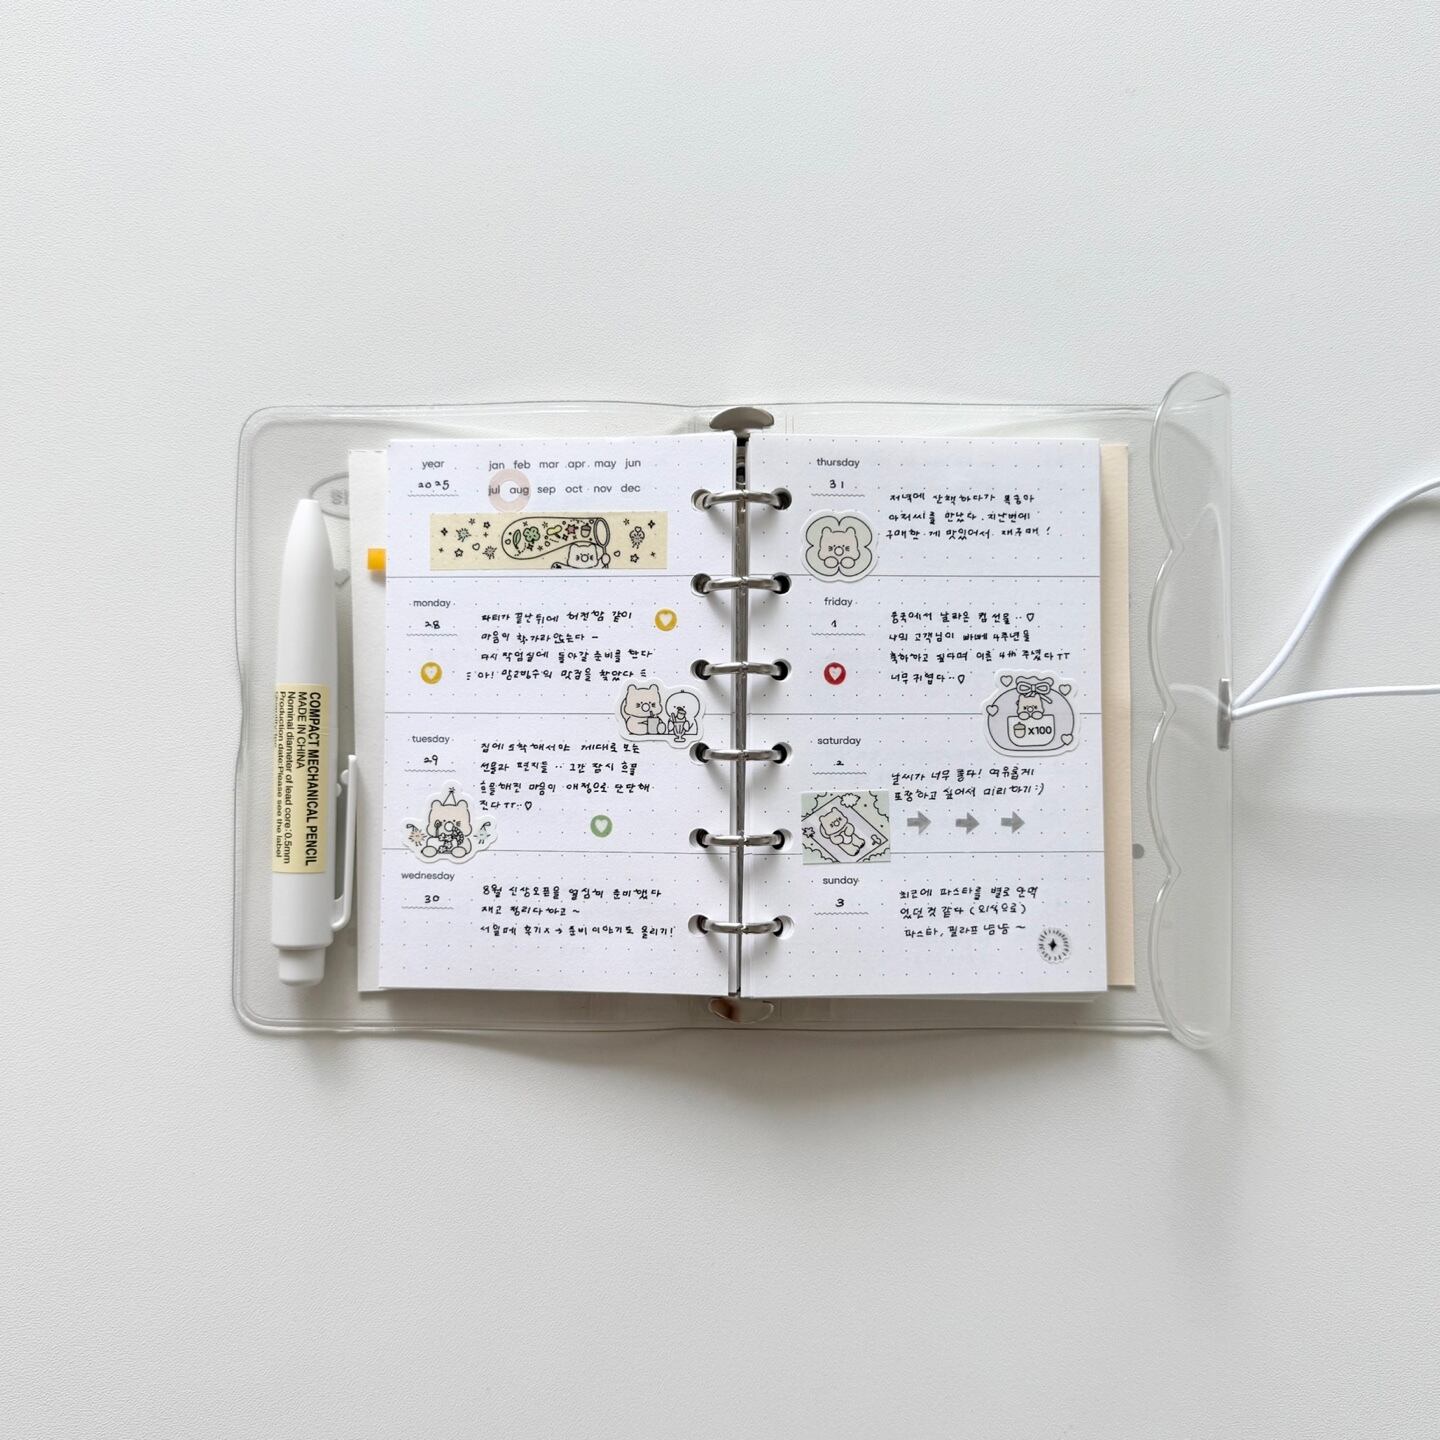 year
2025
jan feb mar apr may jun
jul aug sep oct nov dec
monday
28
파티가 끝난 뒤에 허전함 같이
마음이 착 가라앉는다 -
다시 작업실에 돌아갈 준비를 한다
아! 망고빙수의 맛집을 찾았다
tuesday
29
집에 도착해서야 제대로 보는
선물과 편지들 .. 그간 잠시 흐물
흐물해진 마음이 애정으로 단단해
진다 ㅠㅠ..♡
wednesday
30
8월 신상오픈을 열심히 준비했다
재고 정리다 하고 ~
서일페 후기 → 준비 이야기도 올리기!
thursday
31
저녁에 산책하다가 복숭아
아저씨를 만났다. 지난번에
구매한 게 맛있어서 재구매!
friday
1
중국에서 날라온 컵 선물..♡
나의 고객님이 4주년을
축하하고 싶다며 이름 4th 주셨다ㅠㅠ
너무 귀엽다..♡
x100
saturday
2
날씨가 너무 좋다! 여유롭게
포장하고 싶어서 미리 하기 :)
sunday
3
최근에 파스타를 별로 안먹
었던 것 같다 (외식으로)
파스타, 필라프 냠냠 ~
COMPACT MECHANICAL PENCIL
MADE IN CHINA
Nominal diameter of lead core:0.5mm
Production date:Please see the label